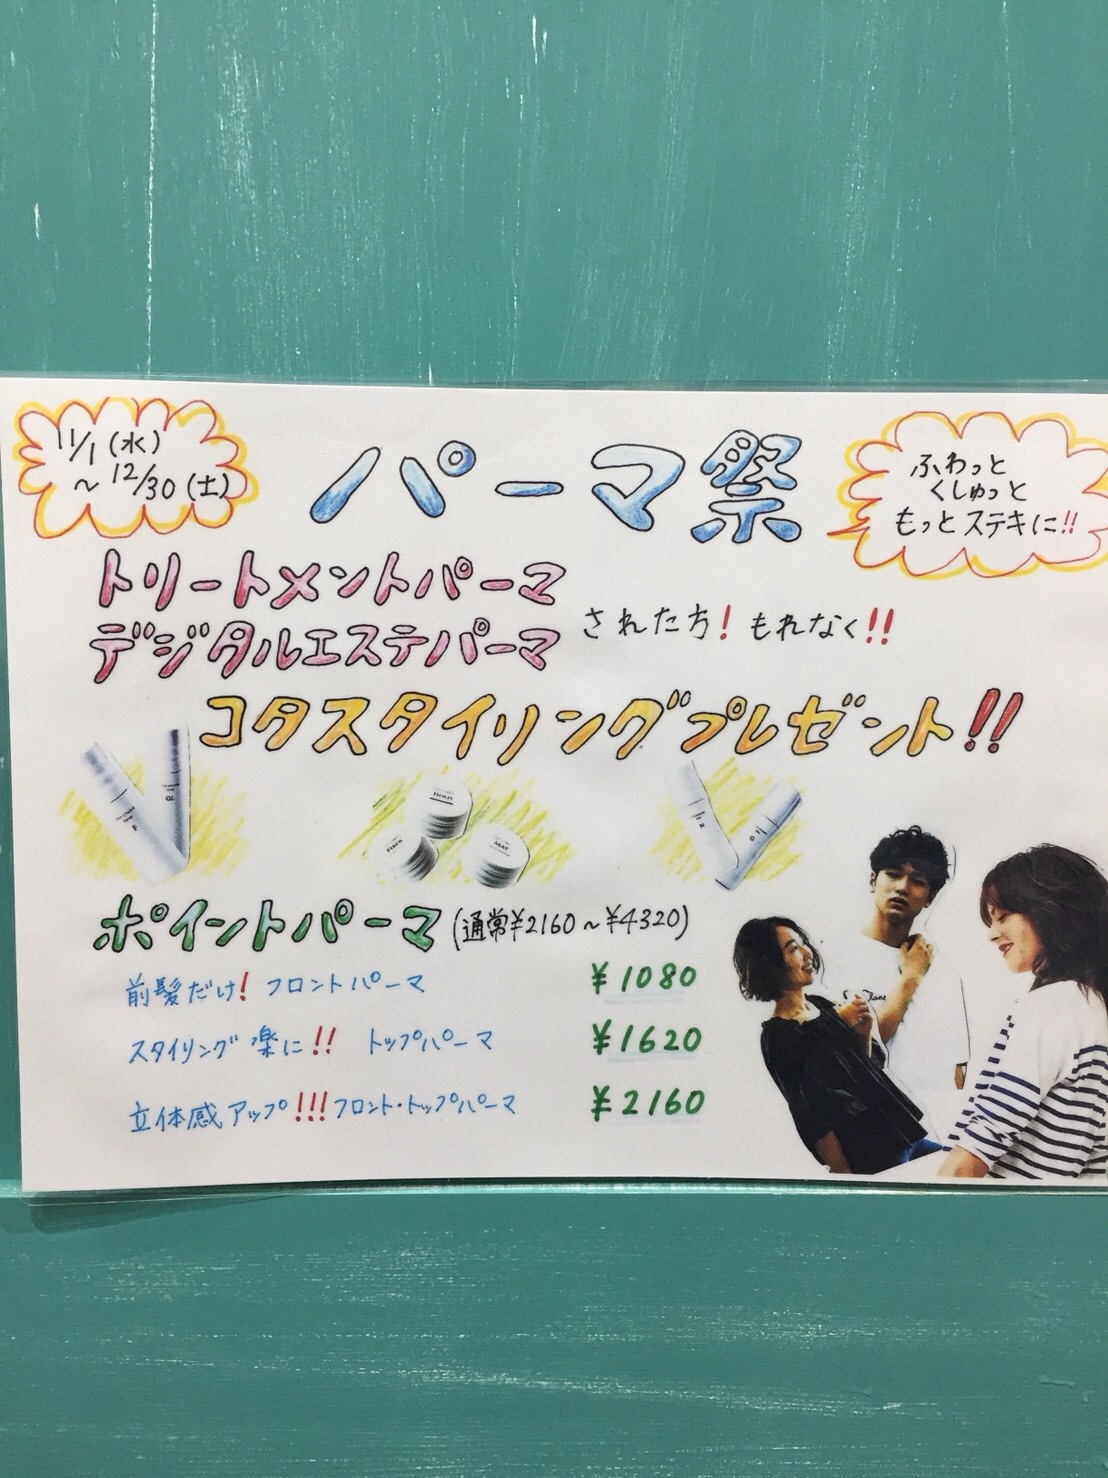 11/1(水)
～12/30(土)
パーマ祭
ふわっと
くしゅっと
もっとステキに!!
トリートメントパーマ
デジタルエステパーマ
された方! もれなく!!
コタスタイリングプレゼント!!
HOLD
MAT
ポイントパーマ(通常¥2160～¥4320)
前髪だけ! フロントパーマ ¥1080
スタイリング楽に!! トップパーマ ¥1620
立体感アップ!!! フロント・トップパーマ ¥2160